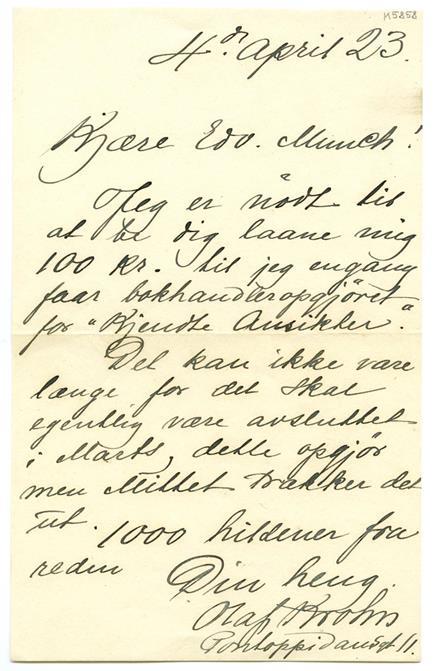 K5858
4de April 23.
Kjære Edv. Munch!
Jeg er nödt til
at be dig laane mig
100 kr. til jeg engang
faar bokhandleropgjöret
for "Kjendte Ansikter".
Det kan ikke være
længe for det skal
egentlig være avsluttet
i Marts, dette opgjör
men Mittet trækker det
ut. 1000 hilsener fra
Din heng.
Olaf Krohn
Pontoppidansgt 11.